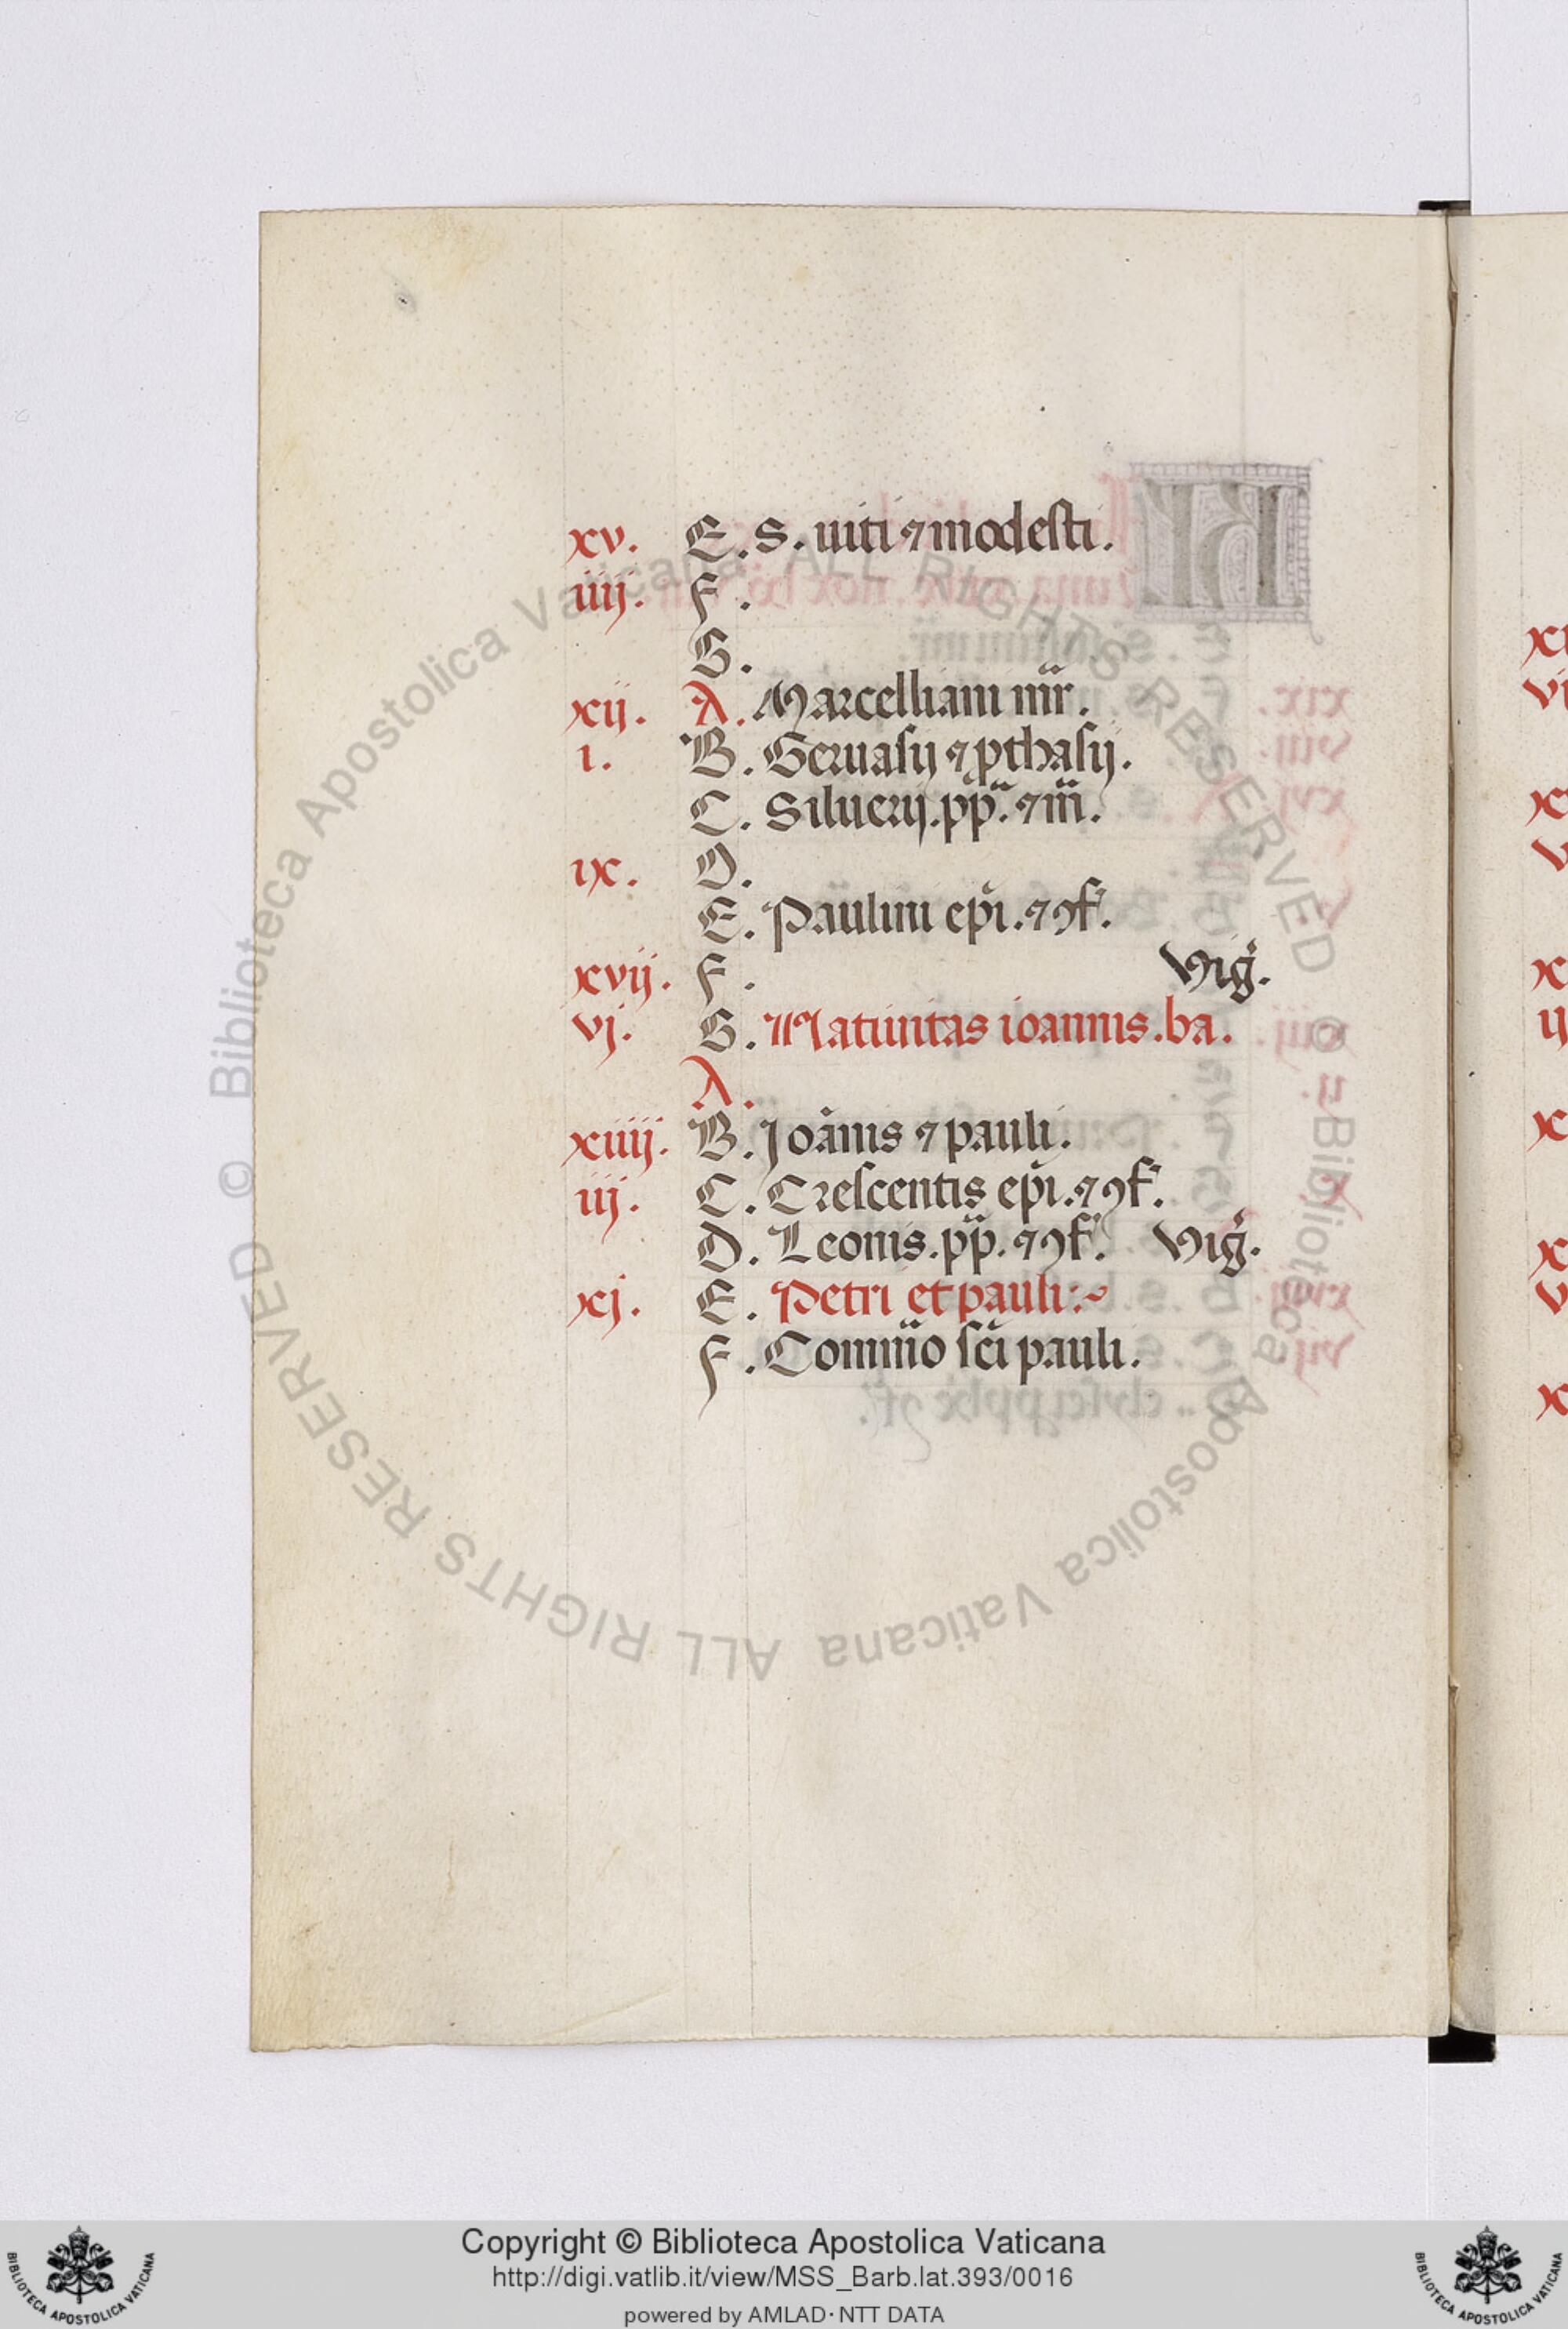 xv. E. S. uiti ⁊ modesti.
iiij. F.
G.
xij. A. Marcelliani mr̄.
i. B. Geruasij ⁊ ꝓthasij.
C. Siluerij. pp̄. ⁊ m̄.
ix. D.
E. Paulini ep̄i. ⁊ ꝯf.
xvij. F. Viḡ.
vj. G. Natiuitas ioannis. ba.
A.
xiiij. B. Joānis ⁊ pauli.
iij. C. Crescentis ep̄i. ⁊ ꝯf.
D. Leonis. pp̄. ⁊ ꝯf. Viḡ.
xj. E. Petri et pauli:~
F. Comm̄o sc̄i pauli.
© Biblioteca Apostolica Vaticana ALL RIGHTS RESERVED © Biblioteca Apostolica Vaticana ALL RIGHTS RESERVED
Copyright © Biblioteca Apostolica Vaticana
http://digi.vatlib.it/view/MSS_Barb.lat.393/0016
powered by AMLAD·NTT DATA
BIBLIOTECA APOSTOLICA VATICANA
BIBLIOTECA APOSTOLICA VATICANA